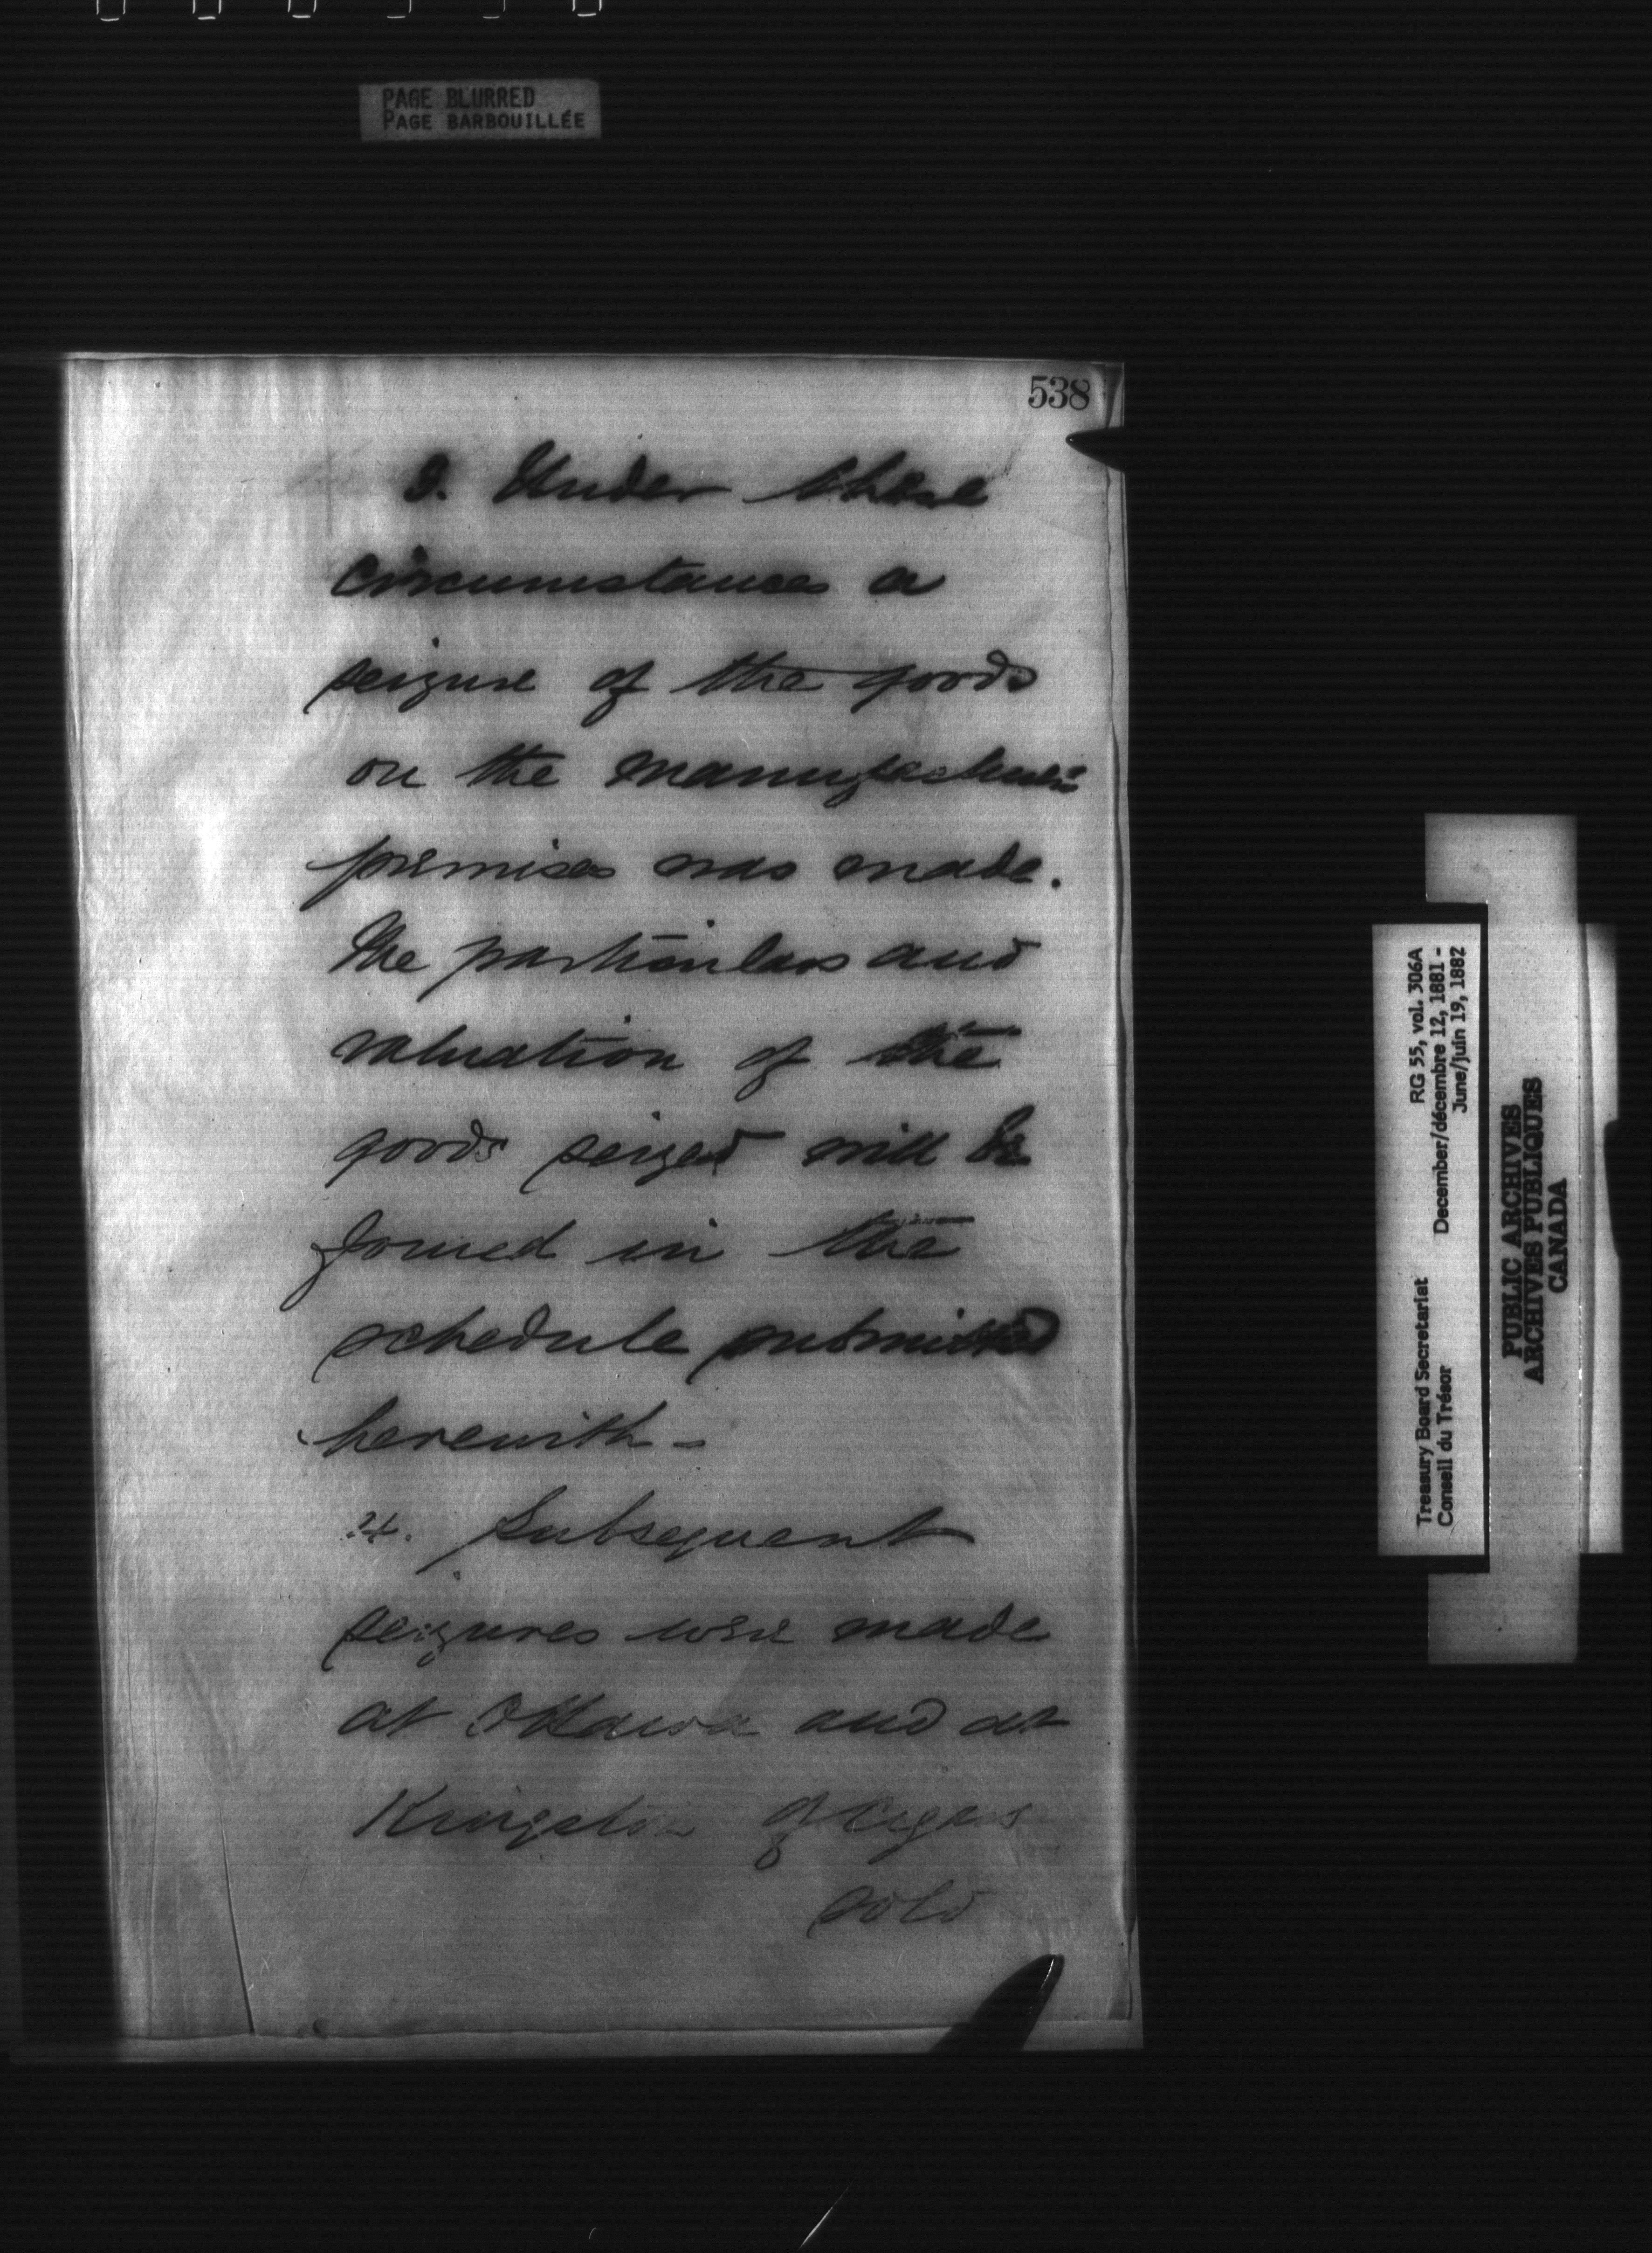 PAGE BLURRED
PAGE BARBOUILLÉE
538
3. Under these
circumstances a
seizure of the goods
on the manufacturer's
premises was made.
The particulars and
valuation of the
goods seized will be
found in the
schedule submitted
herewith -
4. Subsequent
seizures were made
at Ottawa and at
Kingston of cigars
sold
Treasury Board Secretariat RG 55, vol. 306A
Conseil du Trésor December/décembre 12, 1881 -
June/juin 19, 1882
PUBLIC ARCHIVES
ARCHIVES PUBLIQUES
CANADA